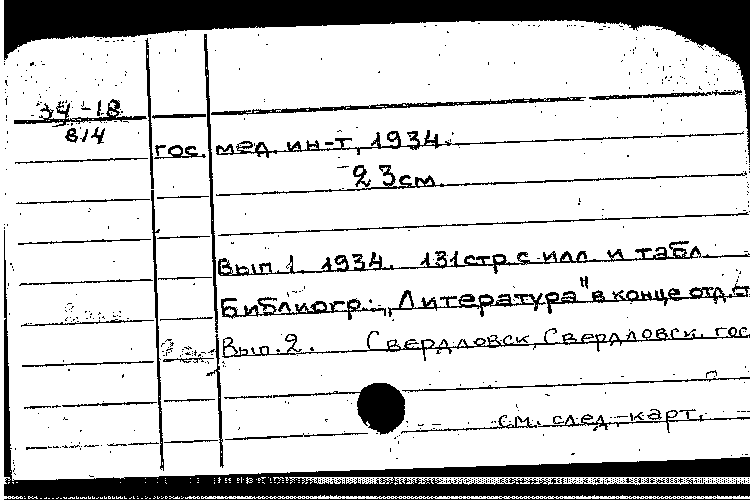 34-18
814
гос. мед. ин-т, 1934.
23 см.
Вып. 1. 1934. 131 стр. с илл. и табл.
Библиогр.: „Литература" в конце отд. ст
Вып. 2. Свердловск, Свердловск. гос
см. след. карт.